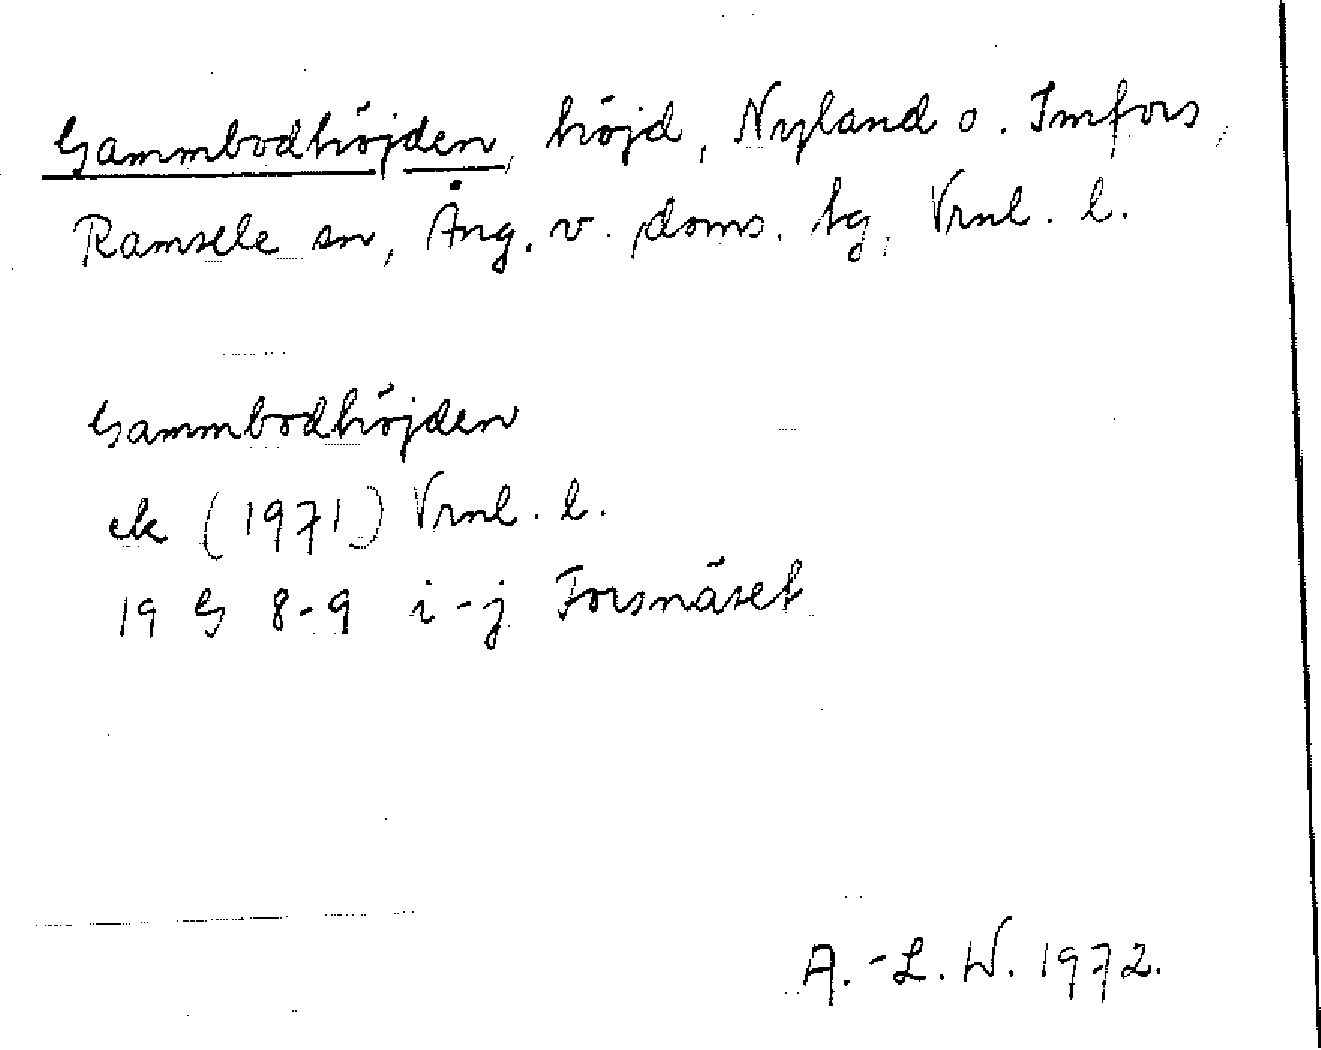 Gammbodhöjden, höjd, Nyland o. Imfors,
Ramsele sn, Ång. v. doms. tg, Vrnl. l.
Gammbodhöjden
ek (1971) Vrnl. l.
19 G 8-9 i-j Forsnäset
A.-L. W. 1972.